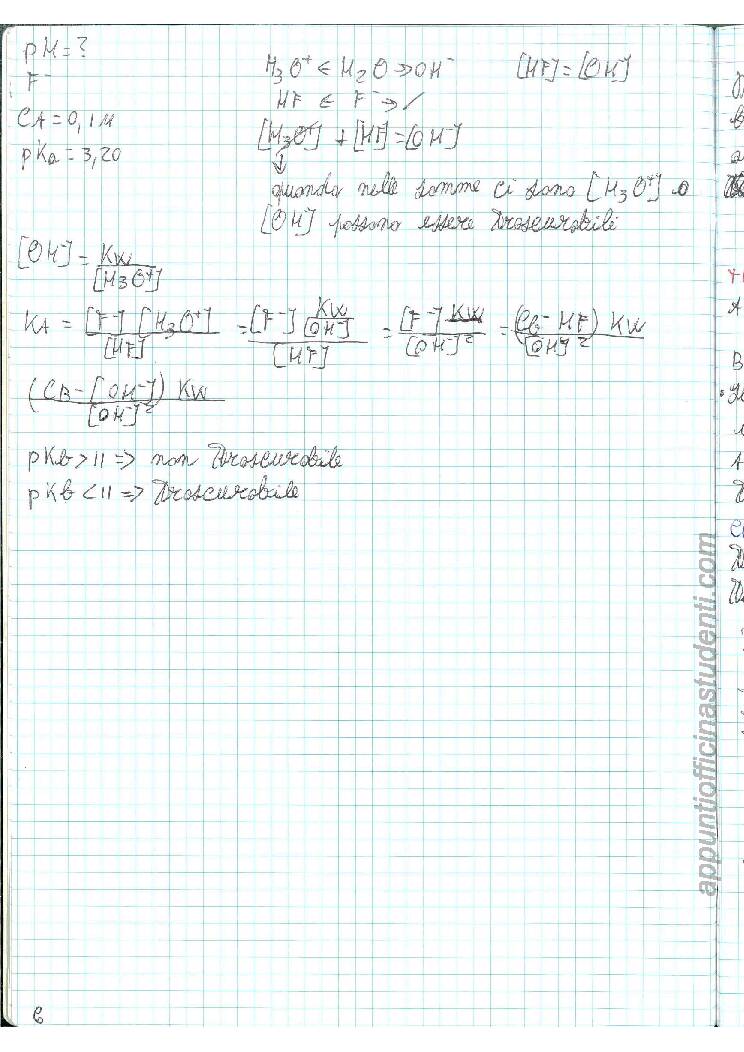 pH = ?
F⁻
CA = 0,1 M
pKa = 3,20
H3O⁺ ⇐ H2O ⇒ OH⁻
HF ⇐ F⁻ → /
[HF] = [OH⁻]
[H3O⁺] + [HF] = [OH⁻]
↓
quando nelle somme ci sono [H3O⁺] o
[OH⁻] possono essere trascurabili
[OH⁻] = Kw / [H3O⁺]
KA = [F⁻] [H3O⁺] / [HF] = [F⁻] Kw/[OH⁻] / [HF] = [F⁻] Kw / [OH⁻]² = (Cb - HF) Kw / [OH⁻]²
(CB - [OH⁻]) Kw / [OH⁻]²
pKb > 11 => non trascurabile
pKb < 11 => trascurabile
6
appuntiofficinastudenti.com